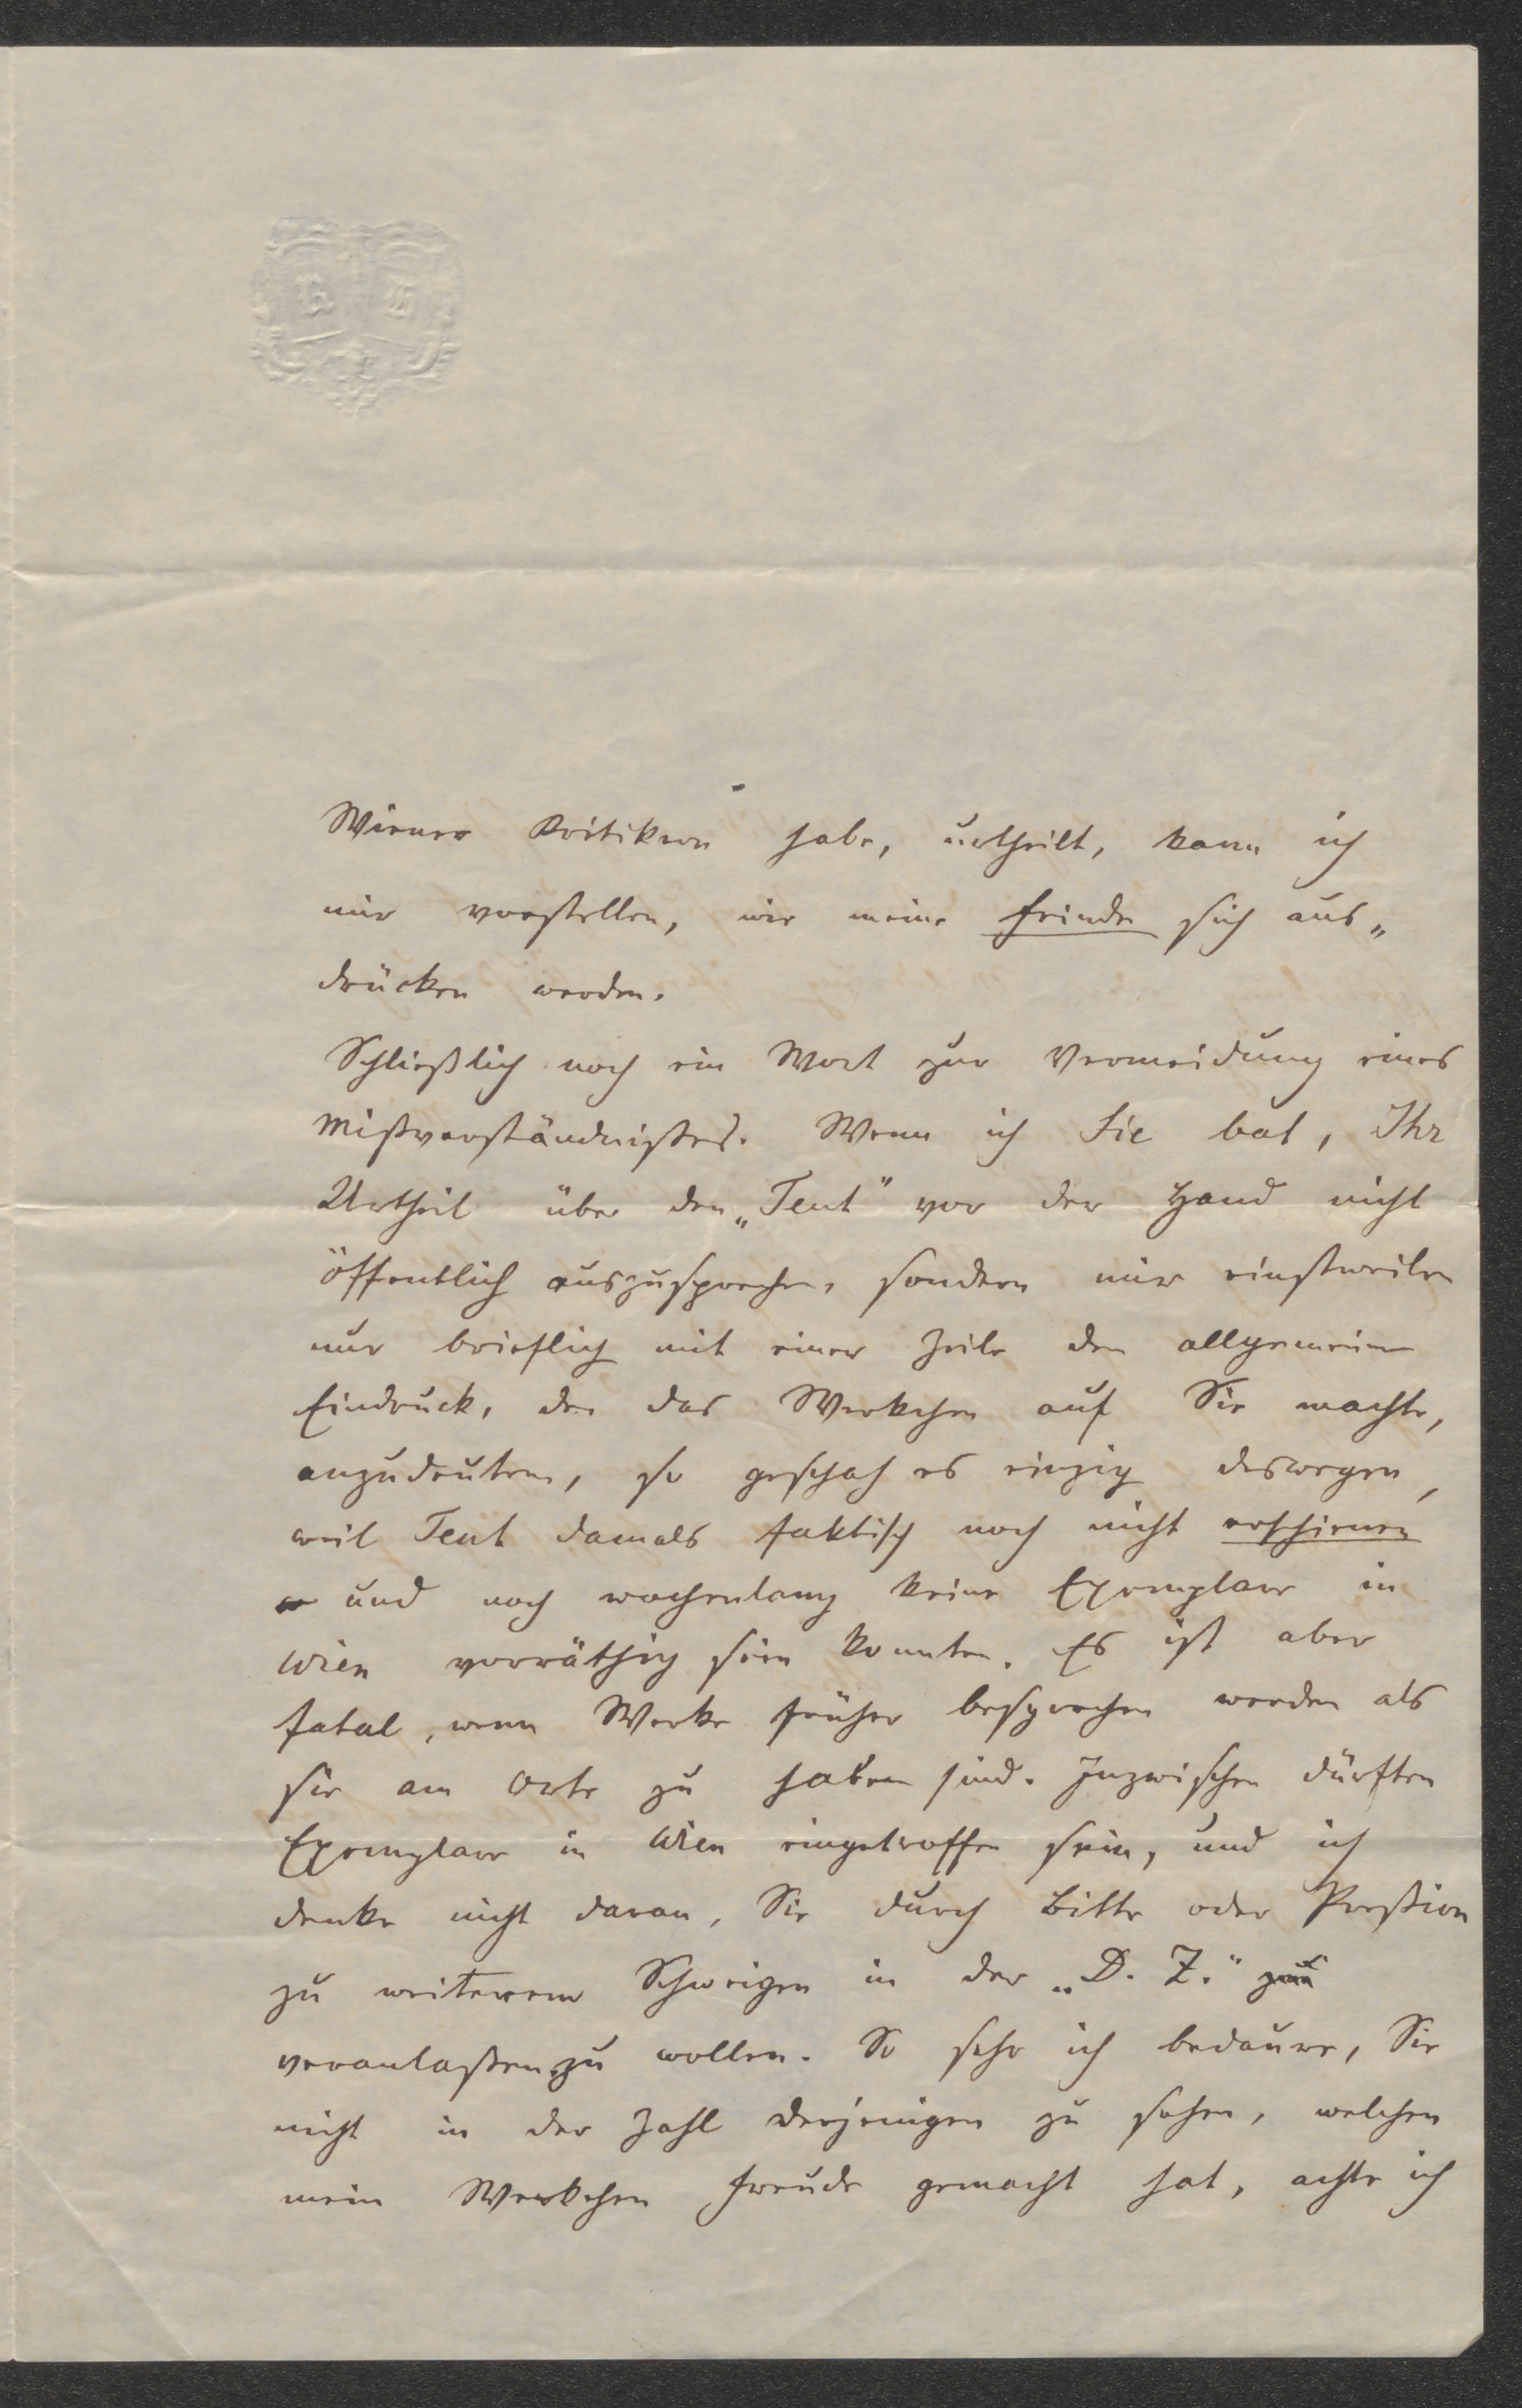 Wiener Kritikern habe, urtheilt, kann ich
mir vorstellen, wie meine Feinde sich aus„
drücken werden.
Schließlich noch ein Wort zur Vermeidung eines
Mißverständnißes. Wenn ich Sie bat, Ihr
Urtheil über den „Teut“ vor der Hand nicht
öffentlich auszusprechen, sondern mir einstweilen
nur brieflich mit einer Zeile den allgemeinen
Eindruck, den das Werkchen auf Sie machte,
anzudeuten, so geschah es einzig deswegen,
weil Teut damals faktisch noch nicht erschienen
und noch wochenlang keine Exemplare in
Wien vorräthig sein konnten. Es ist aber
fatal, wenn Werke früher besprochen werden als
sie am Orte zu haben sind. Inzwischen dürften
Exemplare in Wien eingetroffen sein, und ich
denke nicht daran, Sie durch Bitte oder Preßion
zu weiterem Schweigen in der „D. Z.“
veranlaßen zu wollen. So sehr ich bedaure, Sie
nicht in der Zahl derjenigen zu sehen, welchen
mein Werkchen Freude gemacht hat, achte ich